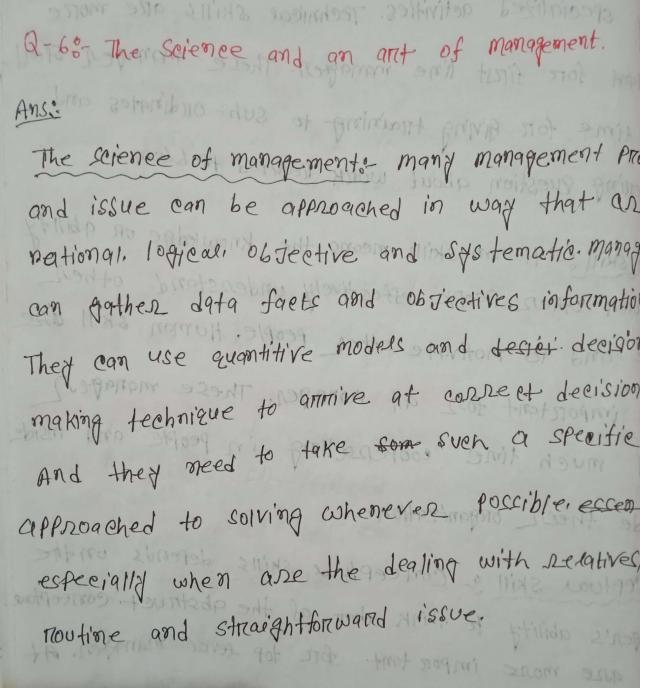 Q-6:- The Science and an art of management.
Ans:
The science of management:- many management pro
and issue can be approached in way that ar
rational. logical, objective and systematic. manag
can gather data facts and objectives informatio
They can use quantitive models and decision
making technique to arrive at correct decision
And they need to take such a specific
approached to solving whenever possible,
especially when are the dealing with relatives,
routine and straightforward issue.